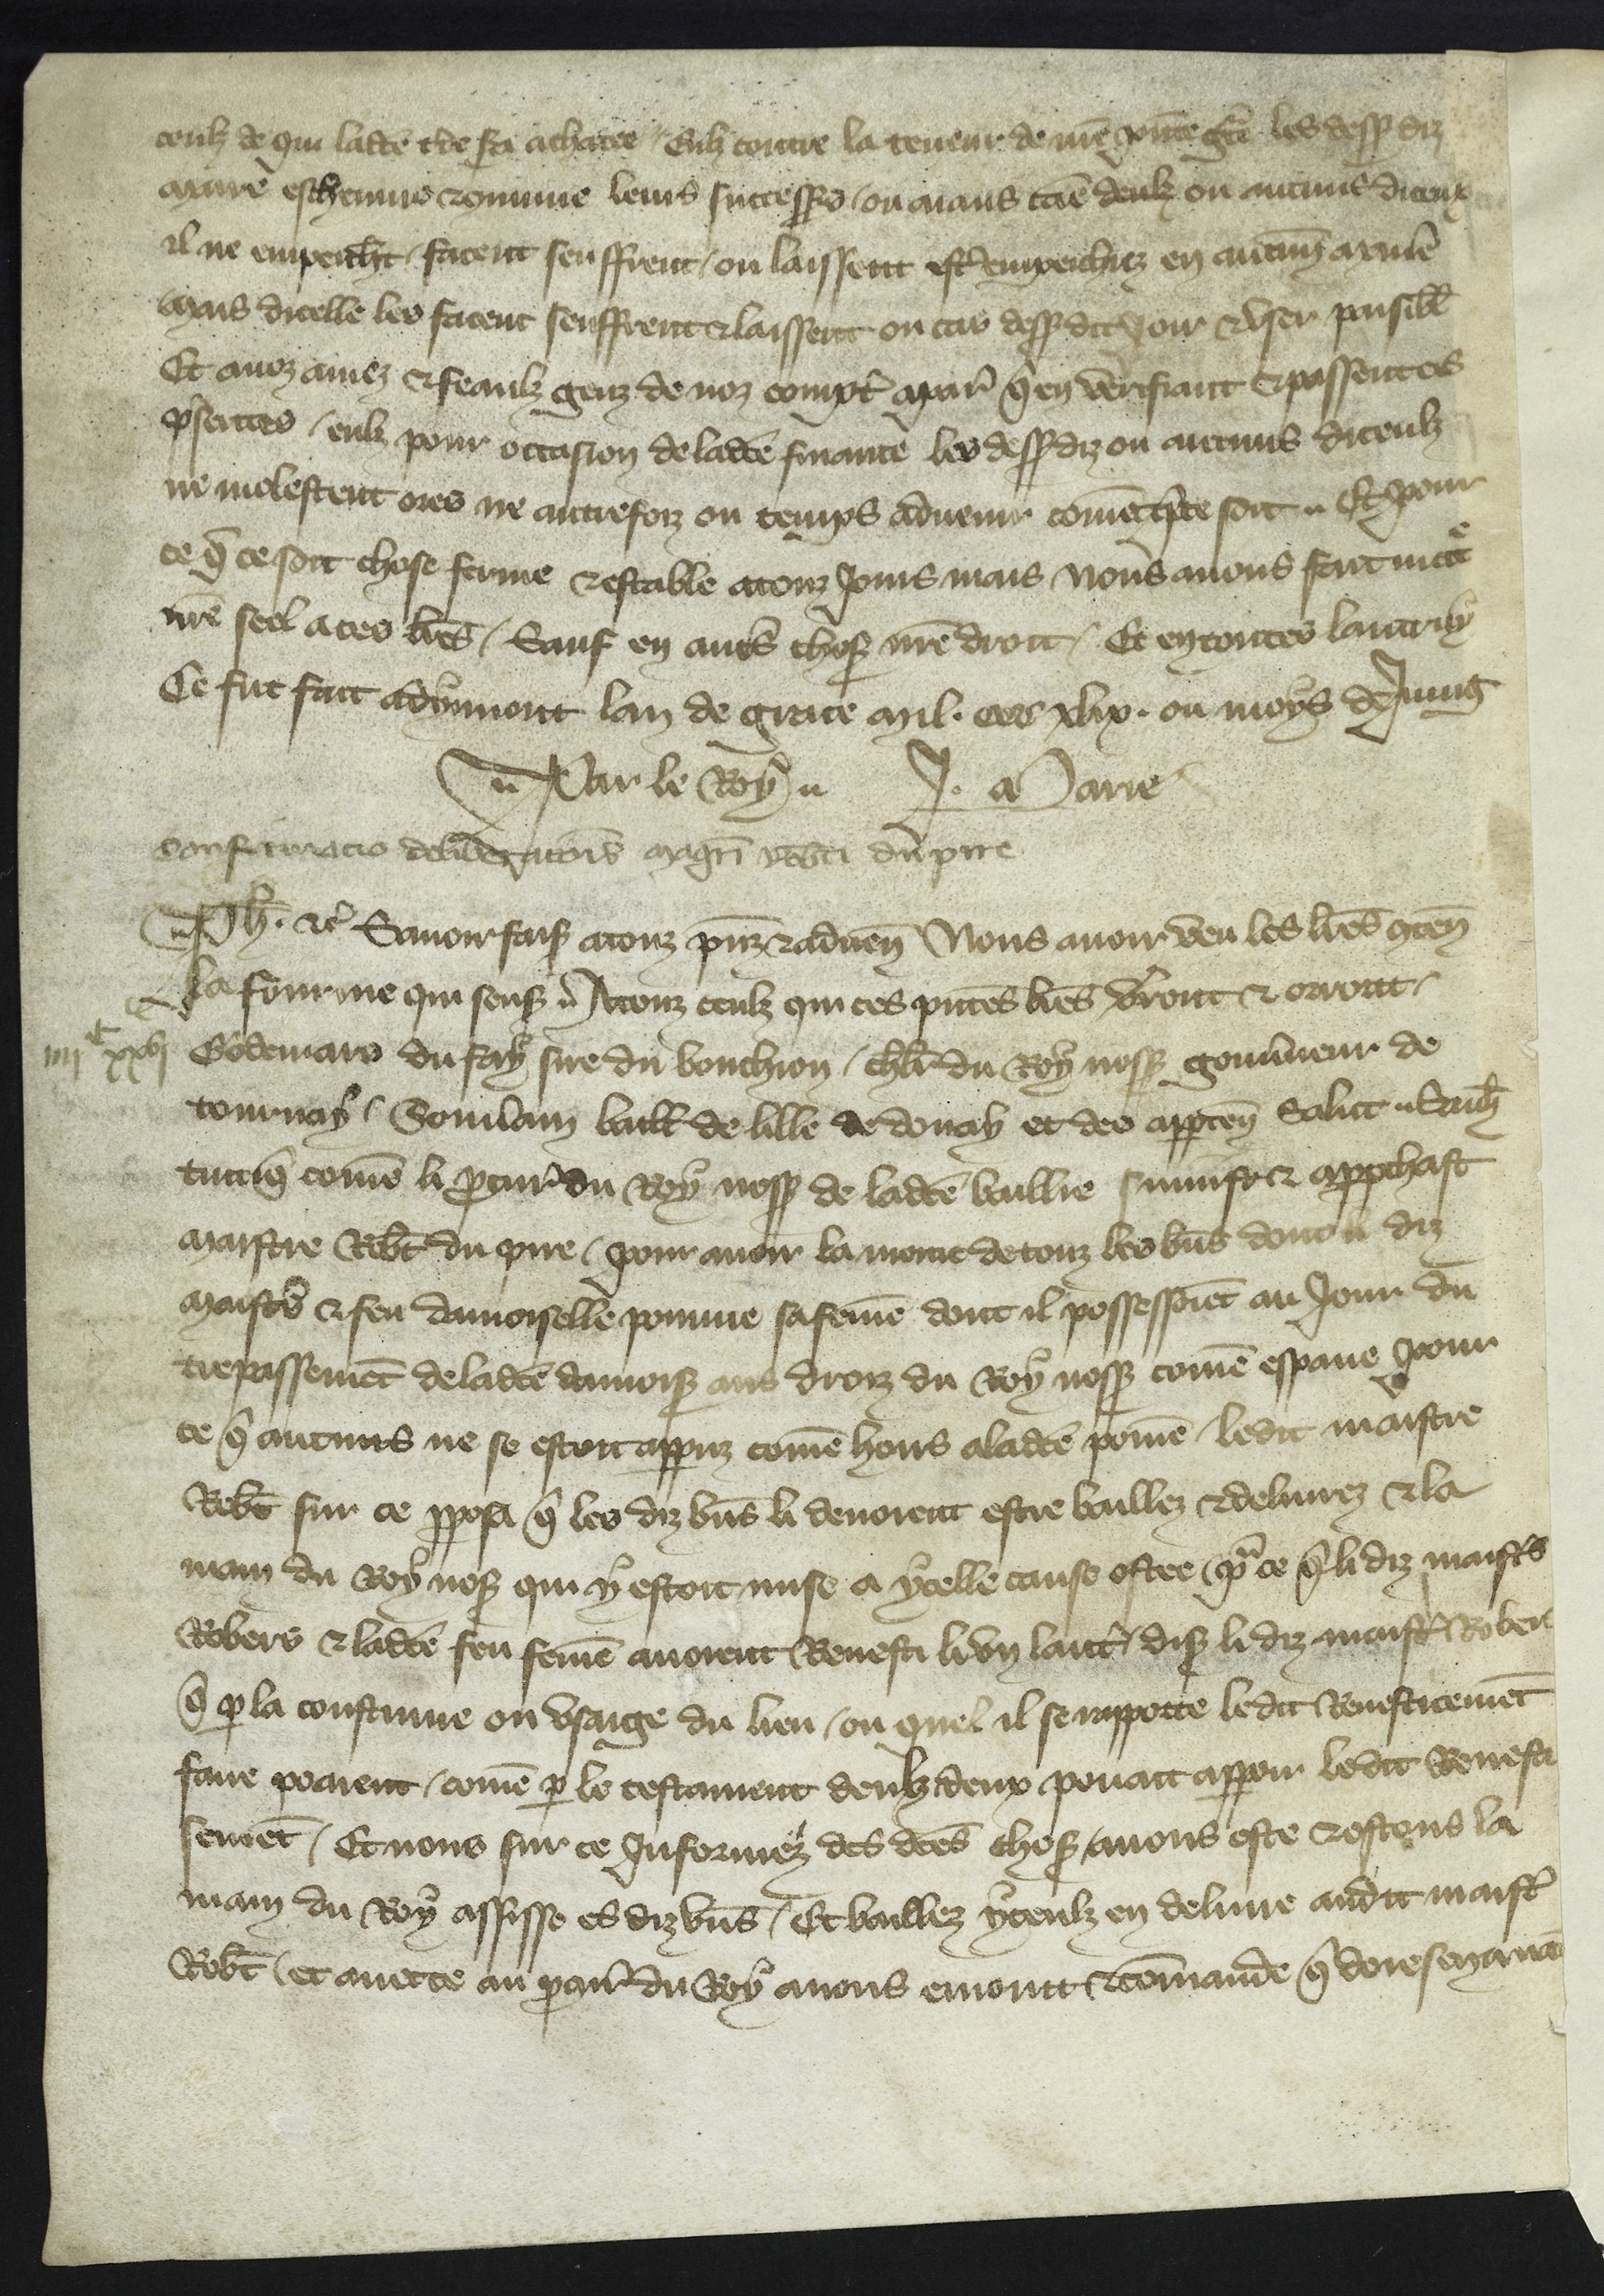 ceulz de qui ladce̅ rde sera achatee / Eulz contre la teneur de nr̅e pn̅te gr̅ce les dessꝰ diz
maire eschevins commune leurs successꝰs / ou aians cau̅e deulz ou aucuns diceux
il ne empeich̅t / facent seuffrent / ou laissent est̅ empeichiez en aucun̅ maniē
Mais dicelle les facent seuffrent ⁊ laissent ou cas dessꝰ dit joir ⁊ user paisibl̅
Et a noz amez ⁊ feaulz genz de noz compt̅ a par̅ q̅ en verifiant ⁊ passent ces
pn̅sentes / eulz pour occasion de ladce̅ finance les dessꝰ diz ou aucuns diceulz
ne molestent ores ne autrefoiz ou temps advenir com̅ent q̅ ce soit ‖ Et pour
ce q̅ ce soit chose ferme ⁊ estable a touz jours mais Nous avons fait mett̅e
nr̅e seel a ces lr̅es / Sauf en aut̅s chosꝰ nr̅e droit / Et en toutes lautruy
Ce fut fait a Dymmont lan de grace mil. ccc xlix. ou moys de Juing
‖ Par le Roy ‖ P. a Marie
Confirmacio deliberacio̅is mag̅ri rob̅ti du pire
‖ Ph̅. ⁊c̅ Savoir faisꝰ a touz pn̅z ⁊ adven̅ Nous avoir veu les lr̅es conten̅
la fourme qui sensꝰ ‖ A touz ceulz qui ces pn̅tes lr̅es verront ⁊ orront /
iiii c xxvi Godemars du fay sire du bouchion / chl̅r du Roy nosꝰ gouv̅neur de
tournay / Souvain baill̅ de lille de douay et des apparten̅ Salut ‖ Sach̅
tuit q̅ com̅e li procur̅ du Roy nosꝰ de ladce̅ baillie suivist ⁊ approchast
maistre Rob̅t du pire / pour avoir la moitie de touz les bn̅s dont li diz
maist̅s ⁊ feu damoiselle pomme sa fem̅e dont il possessoie̅t au Jour du
trepassem̅et de ladce̅ damoisꝰ aus droiz du Roy nosꝰ com̅e espave pour
ce q̅ aucuns ne se estoit apparuz com̅e hoirs a ladce̅ pom̅e / ledit maistre
Rob̅t sur ce p̅posa q̅ les diz bn̅s li devoient estre bailliez ⁊ delivrez ⁊ la
main du Roy nosꝰ qui y estoit mise a ycelle cause ostee / pour ce q̅ li diz maist̅s
Robers ⁊ ladce̅ feu fem̅e avoient Revesti li un laut̅ / disꝰ li diz maist̅ Robert
q̅ p̱ la coustume ou usaige du lieu / ou quel il se rapporte ledit Revesticem̅et
faire poaient / com̅e p̱ le testament deulz deux povait apparoir ledit Revesti
sem̅et / Et nous sur ce Informez des dc̅es chosꝰ / avons oste ⁊ ostons la
main du Roy assisse es diz bn̅s / Et bailliez yceulz en delivre audit maist̅
Rob̅t / et avecce au procur̅ du Roy avons enioint ⁊ com̅ande q̅ doresenavant